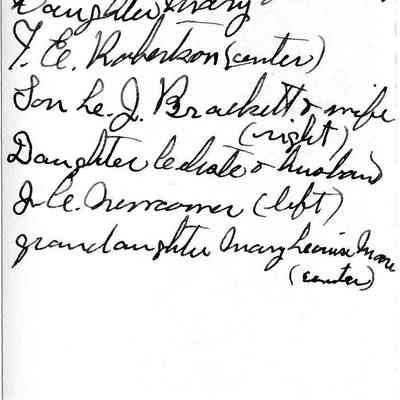 Daughter Mary
T. E. Robertson (center)
Son Le. J. Brackett & wife
(right)
Daughter & husband
Newcomer (left)
granddaughter Mary Louise Moore
(center)